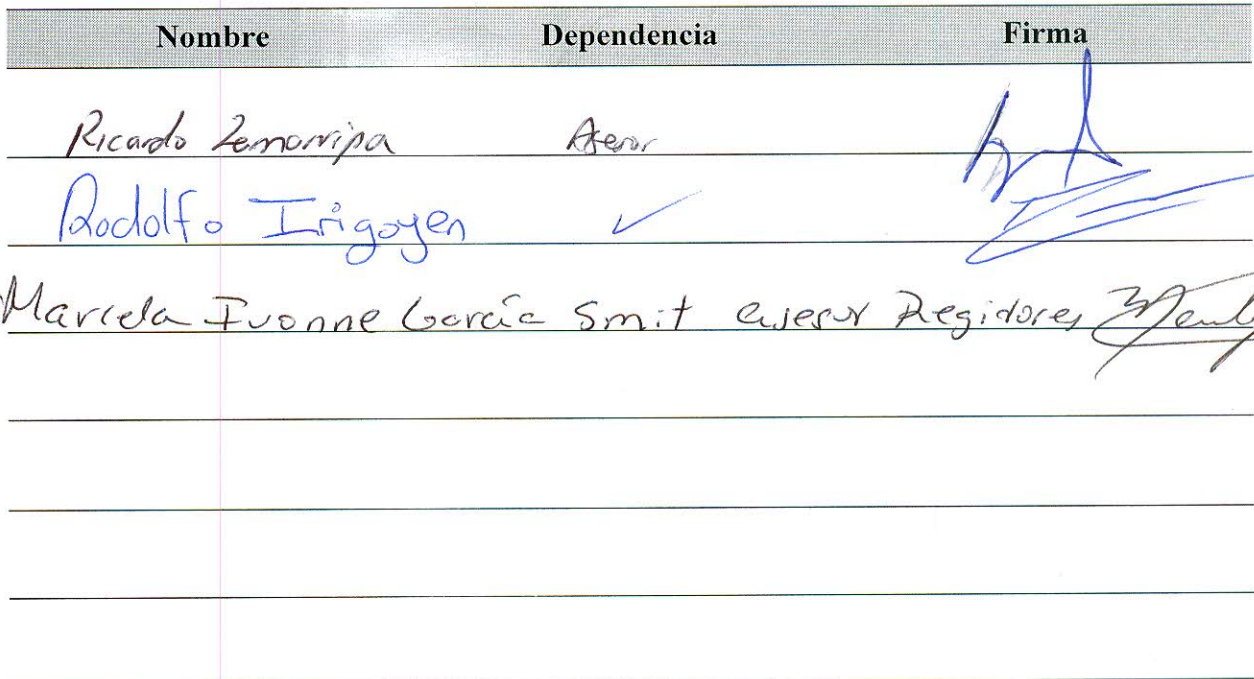 Nombre Dependencia Firma
Ricardo Zamarripa Asesor
Rodolfo Irigoyen ✓
Marcela Ivonne García Smit asesor Regidores